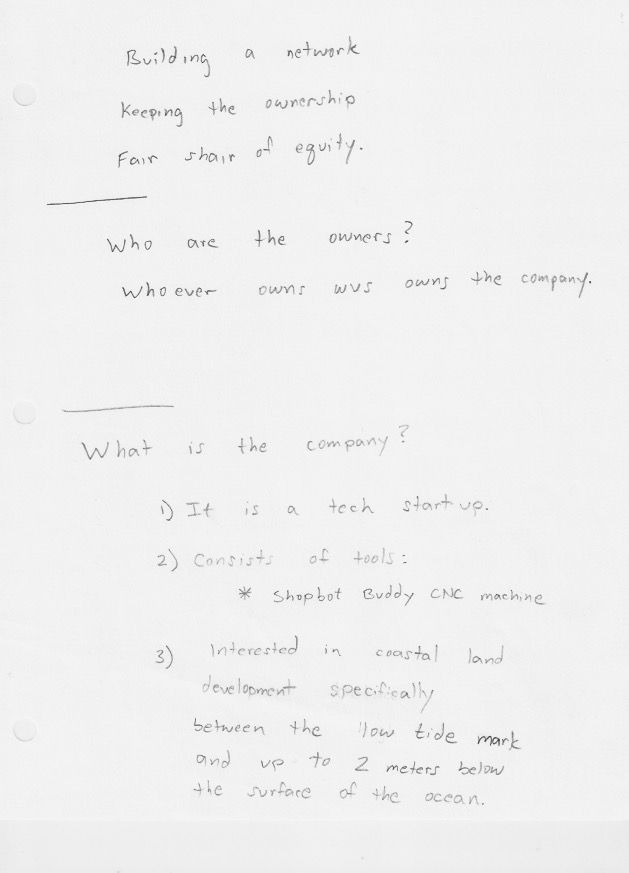 Building a network
Keeping the ownership
Fair shair of equity.
Who are the owners?
Who ever owns wvs owns the company.
What is the company?
1) It is a tech start up.
2) Consists of tools:
* Shopbot Buddy CNC machine
3) Interested in coastal land
development specifically
between the low tide mark
and up to 2 meters below
the surface of the ocean.